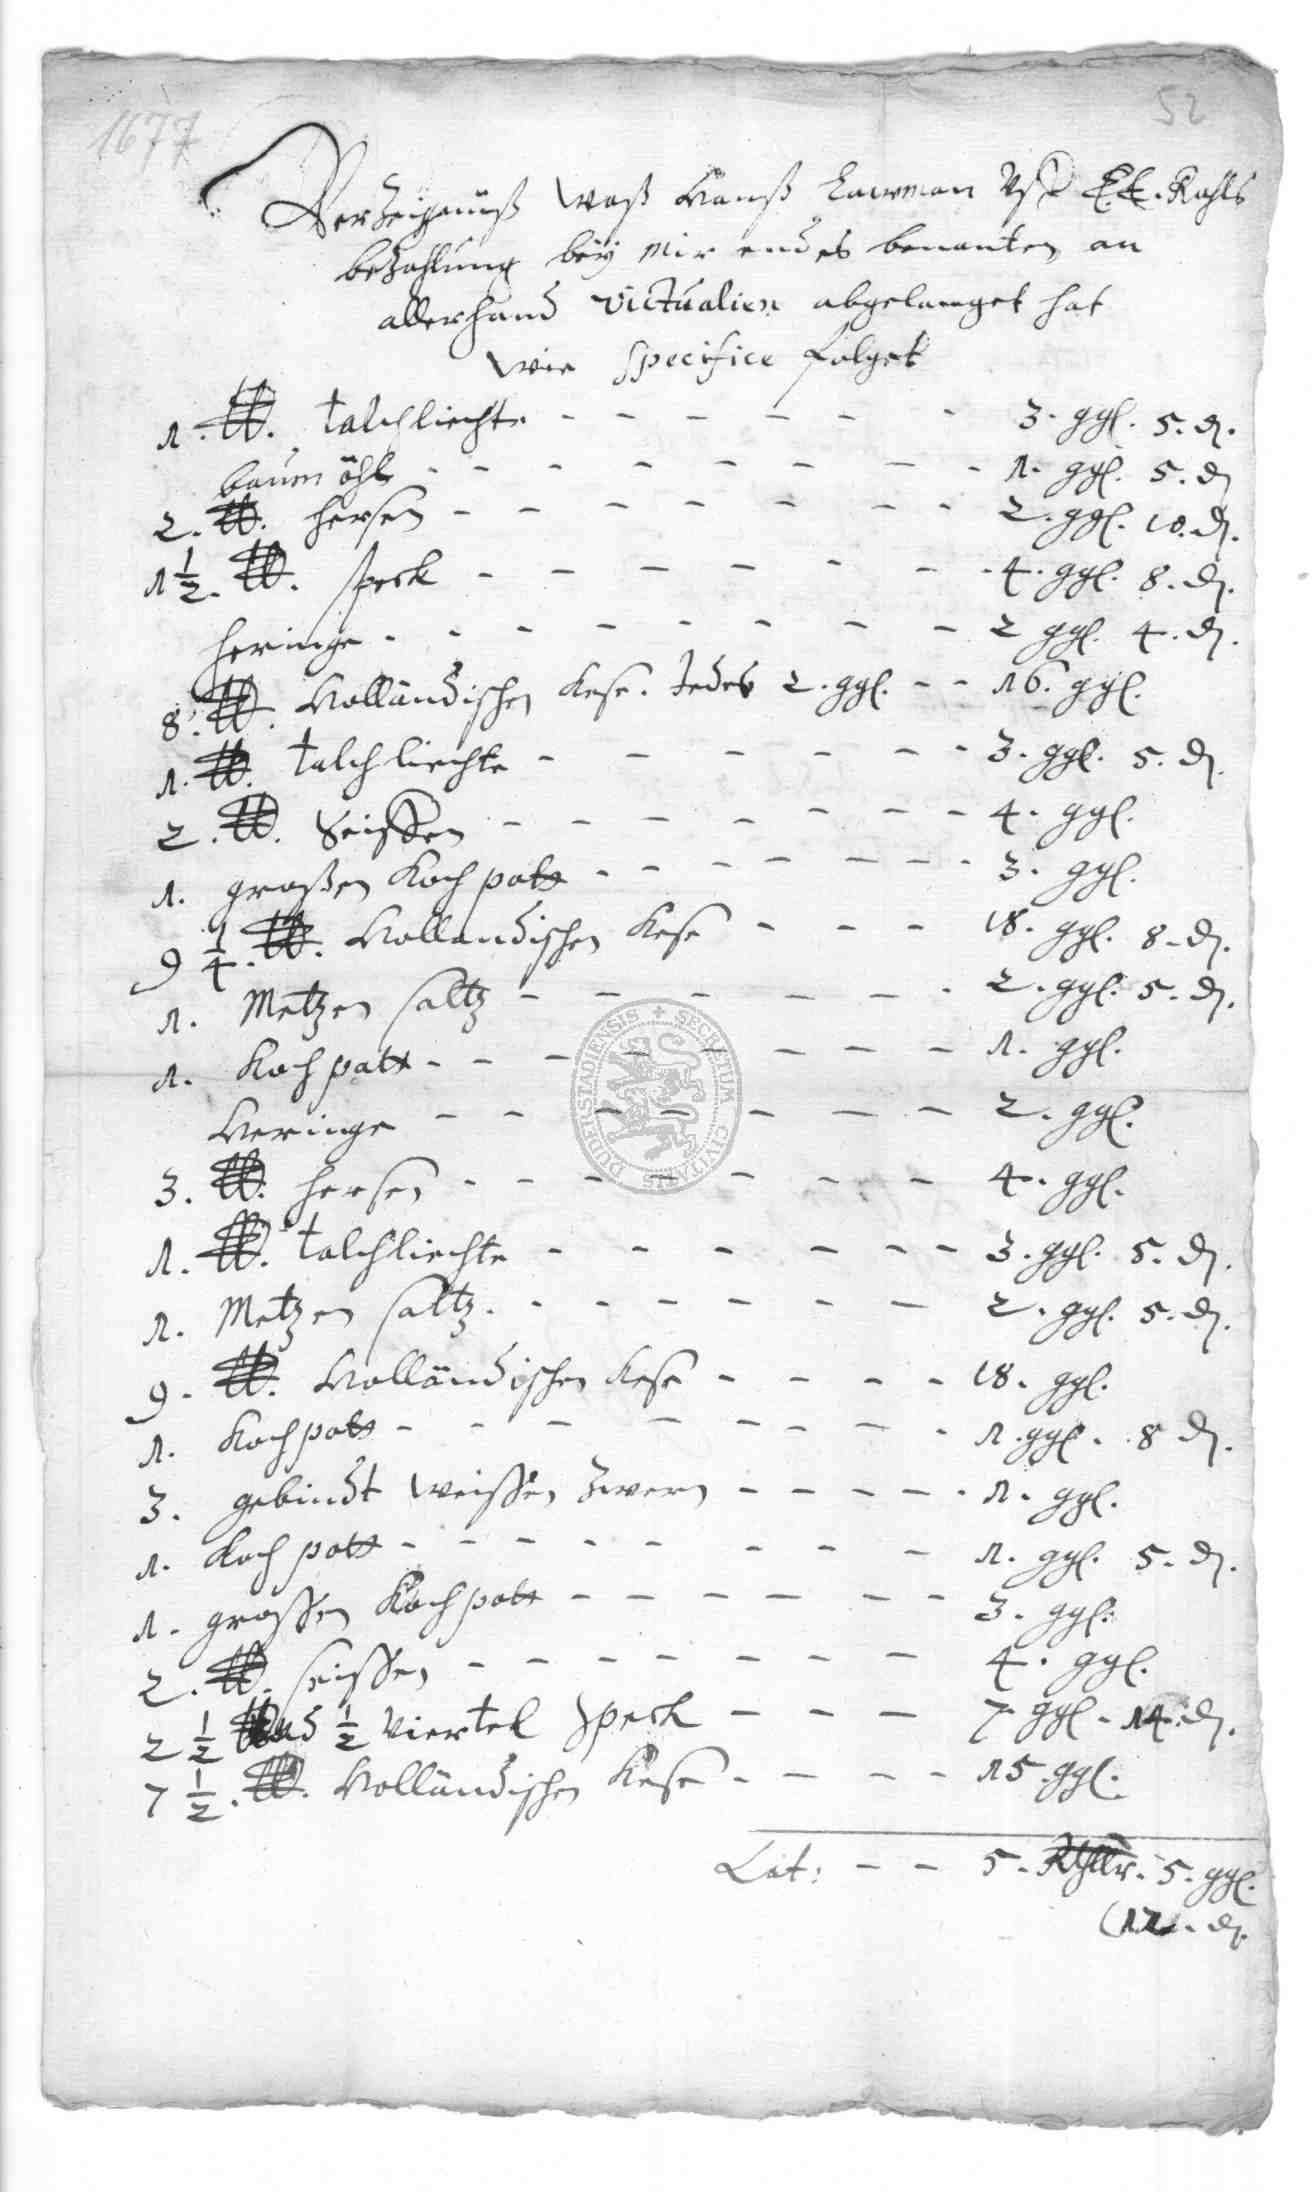 1677
52
Verzeignüß Waß Hanß Lawman Uff E. E. Rahts
bezahlung beÿ Mir endes benanten an
allerhand Victualien abgelanget hat
Wie Specifice folget
1. ℔. talchliechte - - - - - - - 3. ggl. 5. ₰.
baum öhl - - - - - - - - 1. ggl. 5. ₰
2. ℔. hersen - - - - - - - - 2. ggl. 10. ₰.
1 1/2. ℔. speck - - - - - - - - 4. ggl. 8. ₰.
heringe - - - - - - - - - 2 ggl. 4. ₰.
8. ℔. Holländischen Kese. Jedes 2. ggl. - - 16. ggl.
1. ℔. talchliechte - - - - - - - 3. ggl. 5. ₰.
2. ℔. Seiffen - - - - - - - - 4. ggl.
1. großen Koch pott - - - - - - - - 3. ggl.
9 1/4. ℔. Hollandischen Kese - - - 18. ggl. 8. ₰.
1. Metzen saltz - - - - - - - 2. ggl. 5. ₰.
1. Koch pott - - - - - - - - - 1. ggl.
Heringe - - - - - - - - 2. ggl.
3. ℔. hersen - - - - - - - - 4. ggl.
1. ℔. talchliechte - - - - - - - 3. ggl. 5. ₰.
1. Metzen saltz. - - - - - - - 2. ggl. 5. ₰.
9. ℔. Holländischen Kese - - - - 18. ggl.
1. Koch pott - - - - - - - - - 1. ggl. 8 ₰.
3. gebindt Weissen Zwern - - - - - 1. ggl.
1. Koch pott - - - - - - - - - 1. ggl. 5. ₰.
1. grossen Koch pott - - - - - - - 3. ggl.
2. ℔. seiffen - - - - - - - - 4. ggl.
2 1/2 ℔ und 1/2 Viertel Speck - - - - 7. ggl. 14. ₰.
7 1/2. ℔. Holländischen Kese - - - - 15. ggl.
Lat: - - 5. Rthllr. 5. ggl.
₰.
SECRETUM CIVITATIS DUDERSTADIENSIS